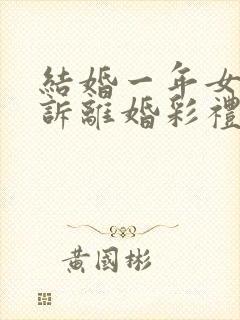 結婚一年女
訴離婚彩禮
黃國彬